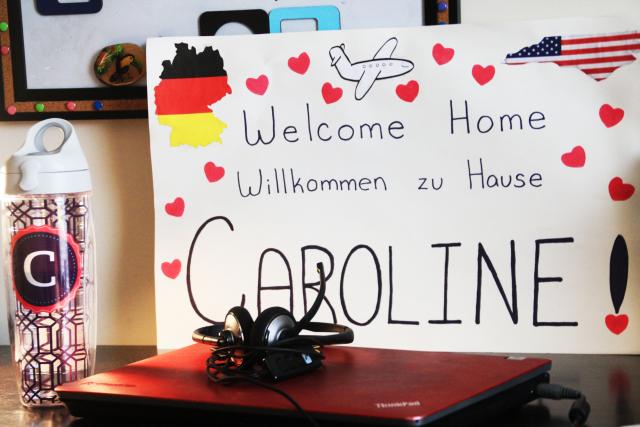 Welcome Home
Willkommen zu Hause
CAROLINE!
C
ThinkPad